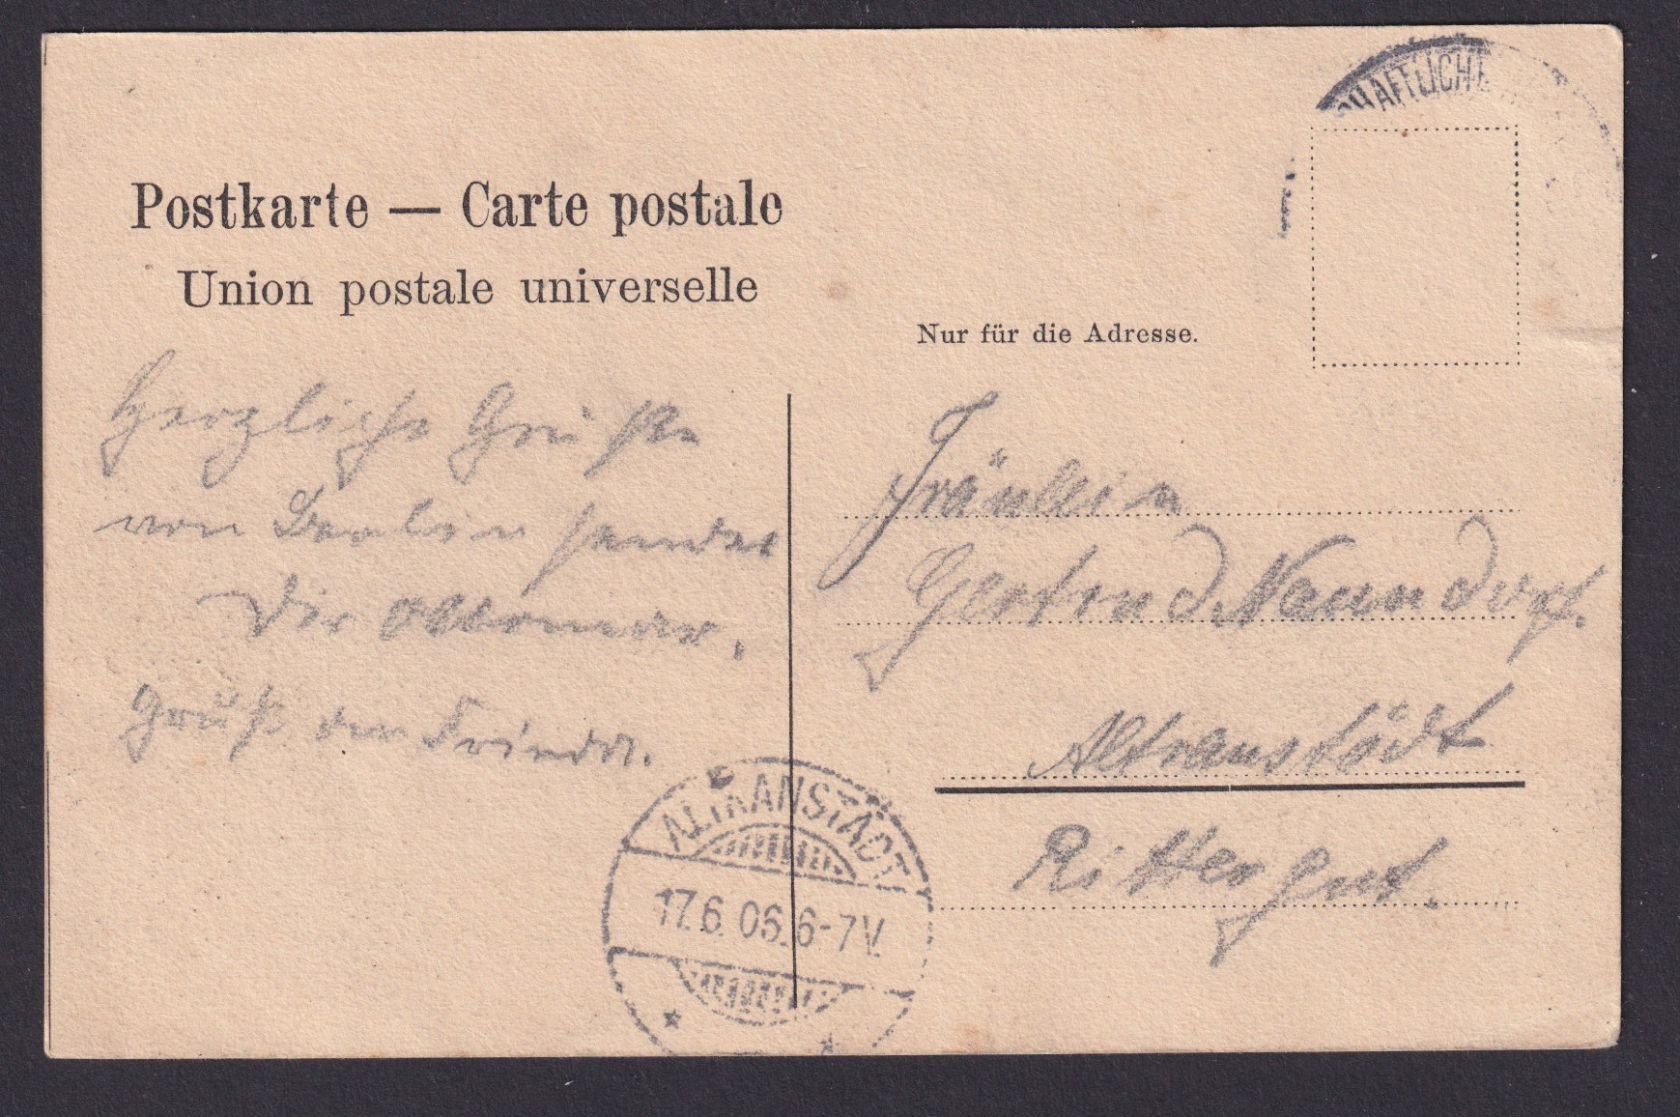 HAFTLICHE
Postkarte — Carte postale
Union postale universelle
Nur für die Adresse.
Herzliche Grüße
von Berlin sendet
Dir
Gruß an
Fräulein
Gertrud Naundorf.
Altranstädt
Rittergut.
ALTRANSTÄDT
17.6.06. 6-7V.